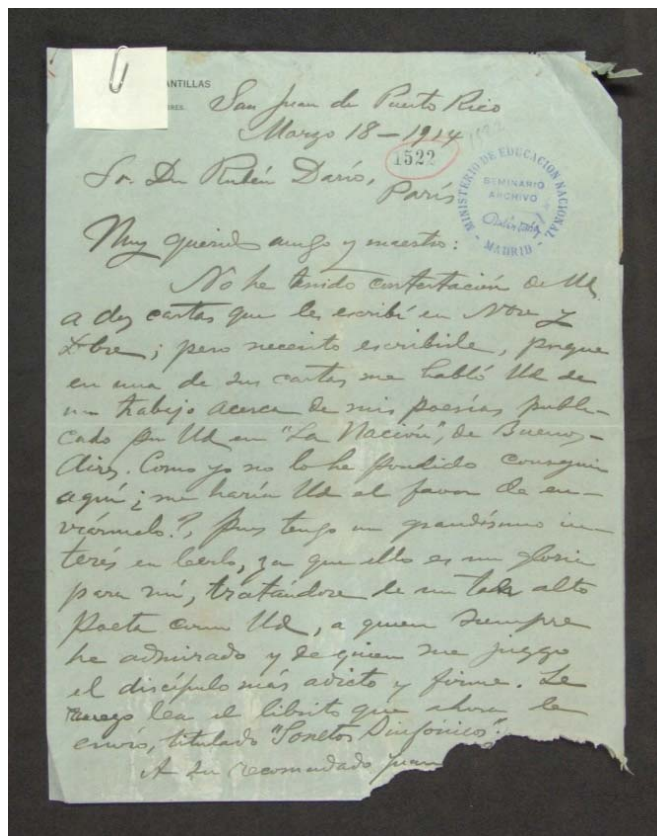 ANTILLAS
San Juan de Puerto Rico
Marzo 18 - 1914
1522
Sr. Dn Rubén Darío,
París
MINISTERIO DE EDUCACION NACIONAL
SEMINARIO
ARCHIVO
MADRID
Muy querido amigo y maestro:
No he tenido contestación de Ud.
a dos cartas que les escribí en Nbre y
Dbre; pero necesito escribirle, porque
en una de sus cartas me habló Ud de
un trabajo acerca de mis poesías publi-
cado por Ud en "La Nación", de Buenos-
Aires. Como yo no lo he podido conseguir
aquí ¿me haría Ud el favor de en-
viármelo?, pues tengo un grandísimo in-
terés en leerlo, ya que ello es una gloria
para mí, tratándose de un tan alto
Poeta como Ud, a quien siempre
he admirado y de quien me juzgo
el discípulo más adicto y firme. Le
ruego lea el librito que ahora le
envío, titulado "Sonetos Sinfónicos".
A su recomendado Juan